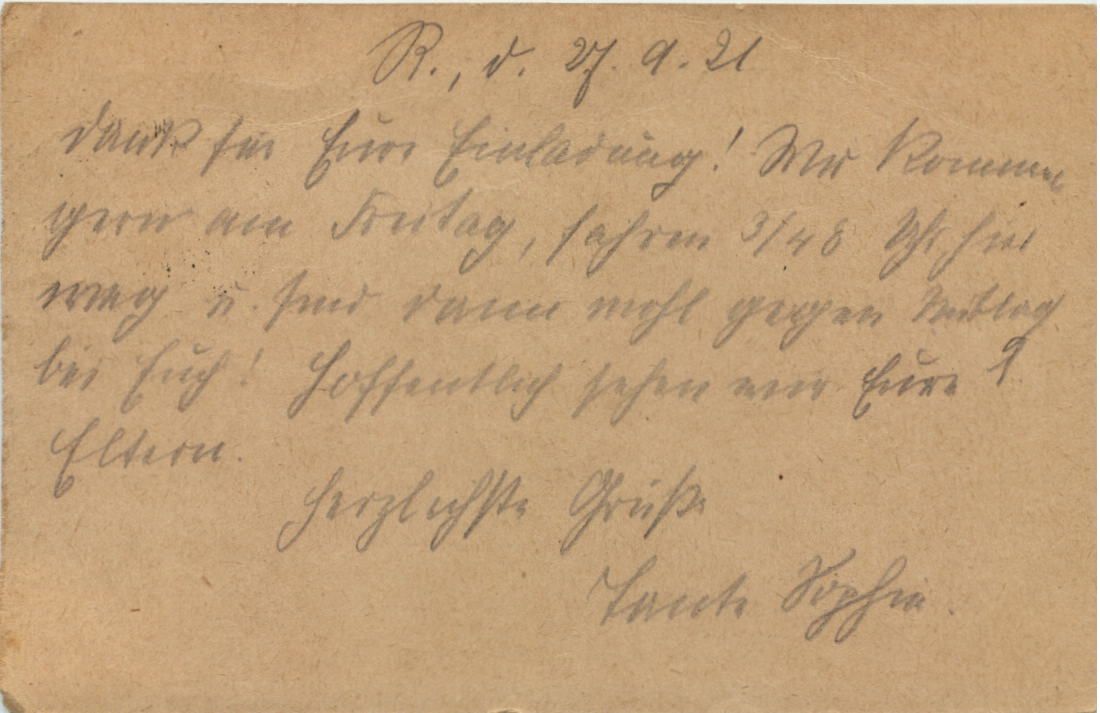 R., d. 27. 9. 21
Dank für Eure Einladung! Wir kommen
gern am Freitag, fahren 3/4 8 Uhr hier
weg u. sind dann wohl gegen Mittag
bei Euch! Hoffentlich sehen wir Eure
Eltern.
Herzlichste Grüße
Tante Sophie.